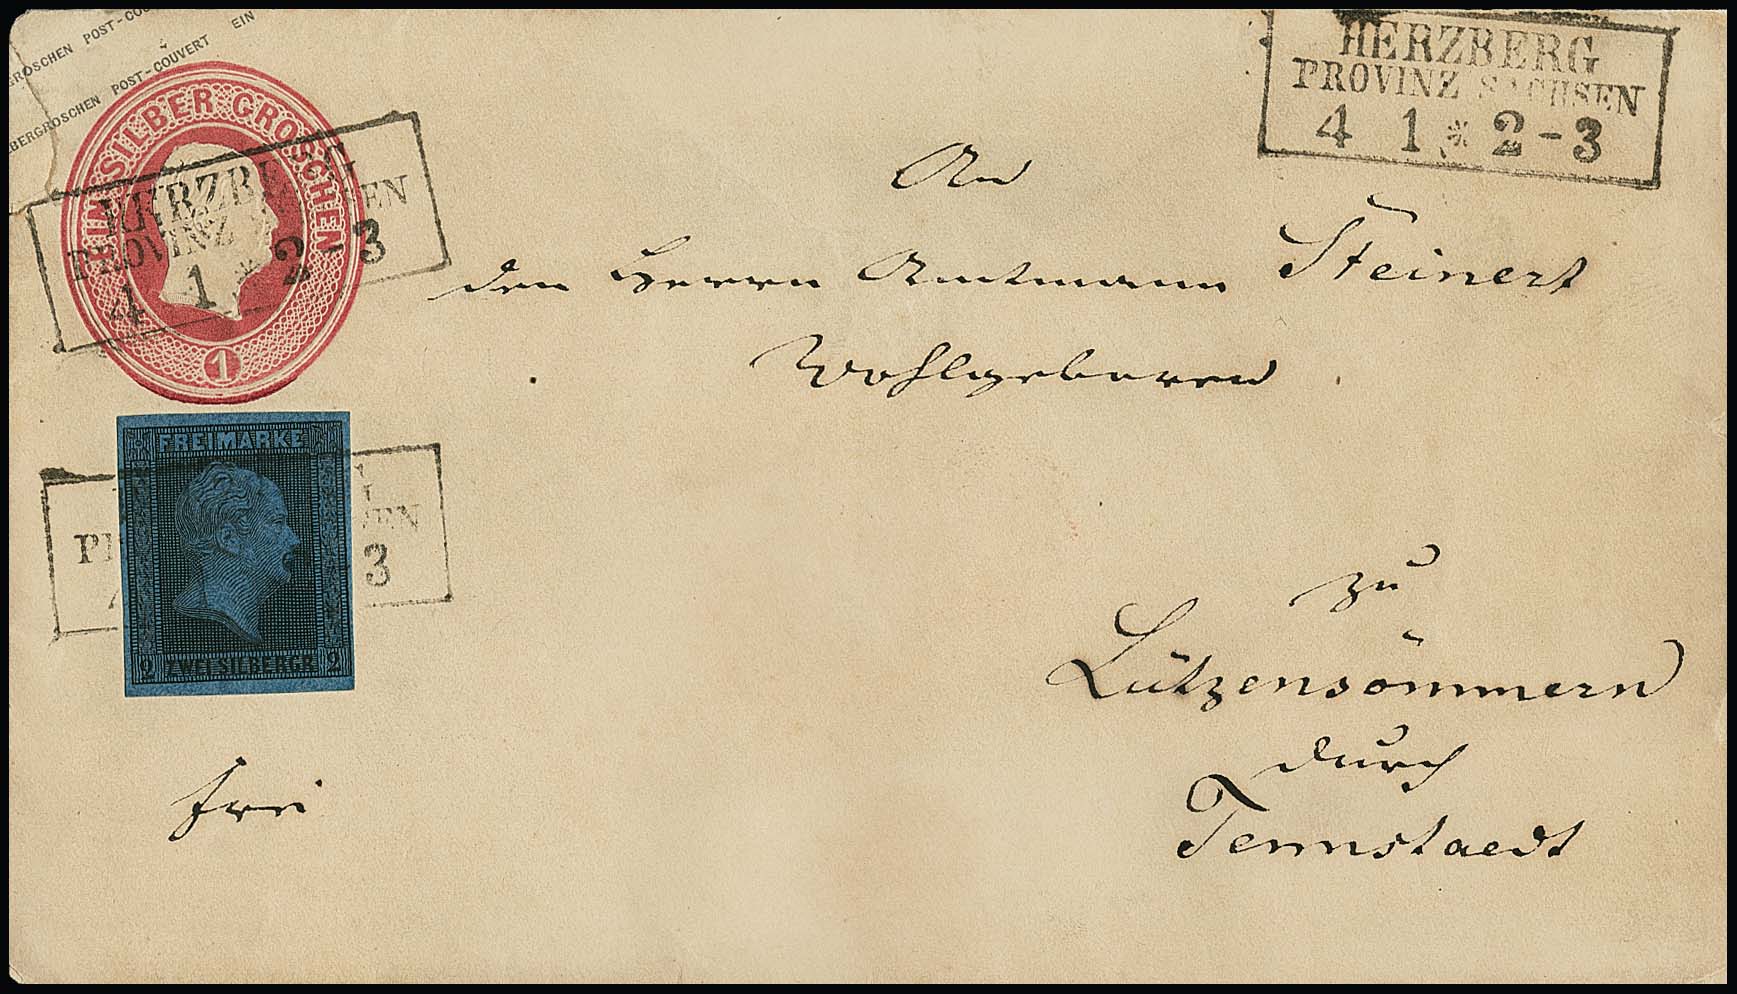 GROSCHEN POST-COU
LBERGROSCHEN POST-COUVERT EIN
EIN SILBER GROSCHEN
1
HERZBERG
PROVINZ SACHSEN
4 1 * 2-3
HERZBERG
PROVINZ SACHSEN
4 1 * 2-3
An
den Herrn Amtmann Steinert
Wohlgeboren
FREIMARKE
2 ZWEI SILBERGR. 2
PR EN
3
zu
Lützensömmern
durch
Tennstaedt
frei